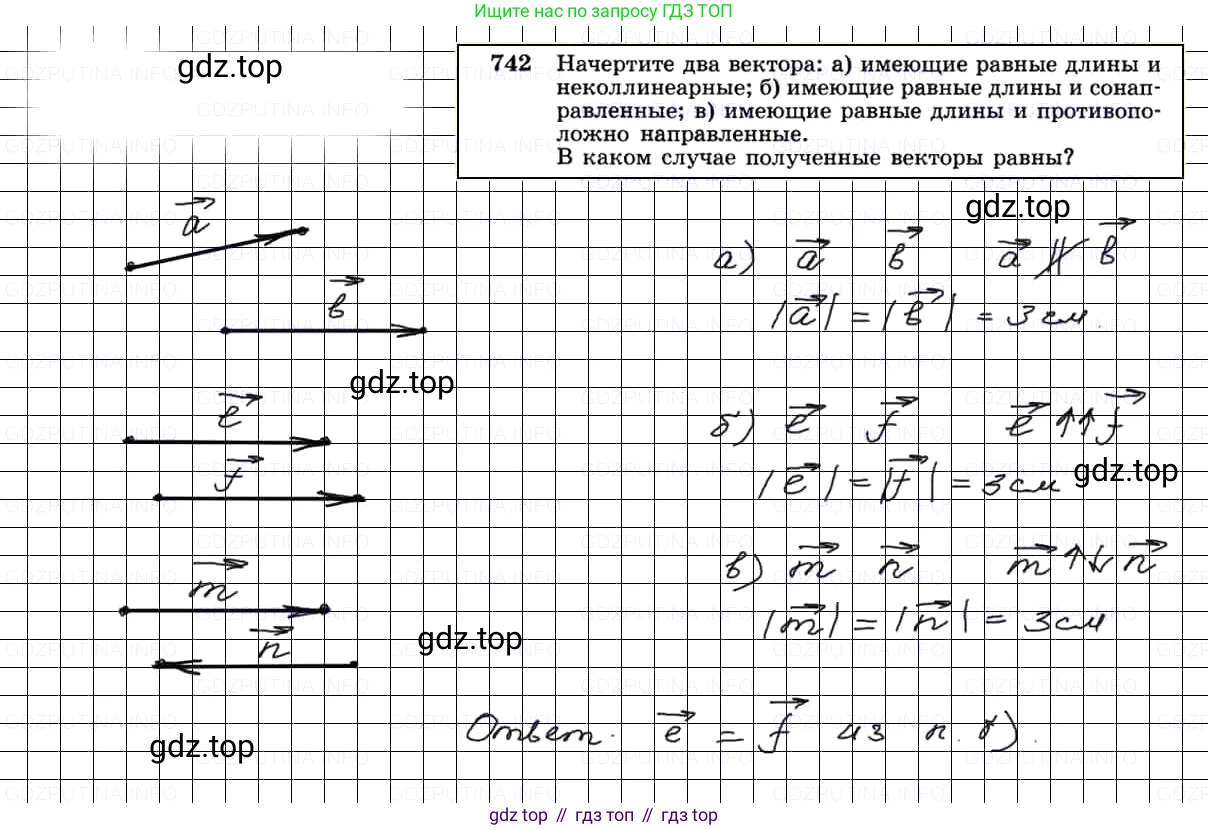 Ищите нас по запросу ГДЗ ТОП
gdz.top
742 Начертите два вектора: а) имеющие равные длины и
неколлинеарные; б) имеющие равные длины и сонап-
равленные; в) имеющие равные длины и противопо-
ложно направленные.
В каком случае полученные векторы равны?
gdz.top
a
а) a b a ∦ b
b
|a| = |b| = 3 см.
gdz.top
e
б) e f e ↑↑ f
f
|e| = |f| = 3 см
gdz.top
m
в) m n m ↑↓ n
|m| = |n| = 3 см
n
gdz.top
Ответ. e = f из п. б).
gdz.top
gdz top // гдз топ // гдз top